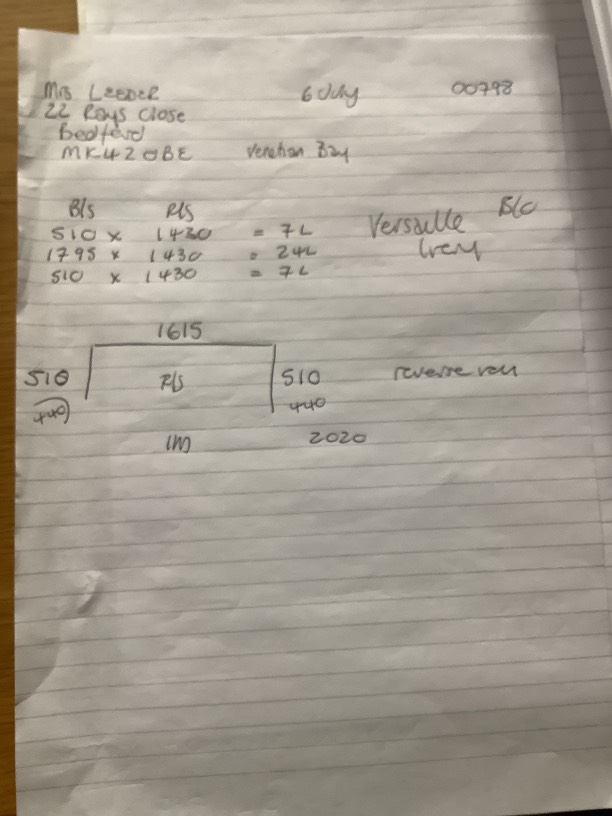 Mrs LEEDER 6 July 00798
22 Rays Close
Bedford
MK42 0BE Venetian Bay
B/s R/s
510 x 1430 = 7L Versaille B/O
1795 x 1430 = 24L
510 x 1430 = 7L
1615
510 R/s 510 reverse
440 440
1M 2020